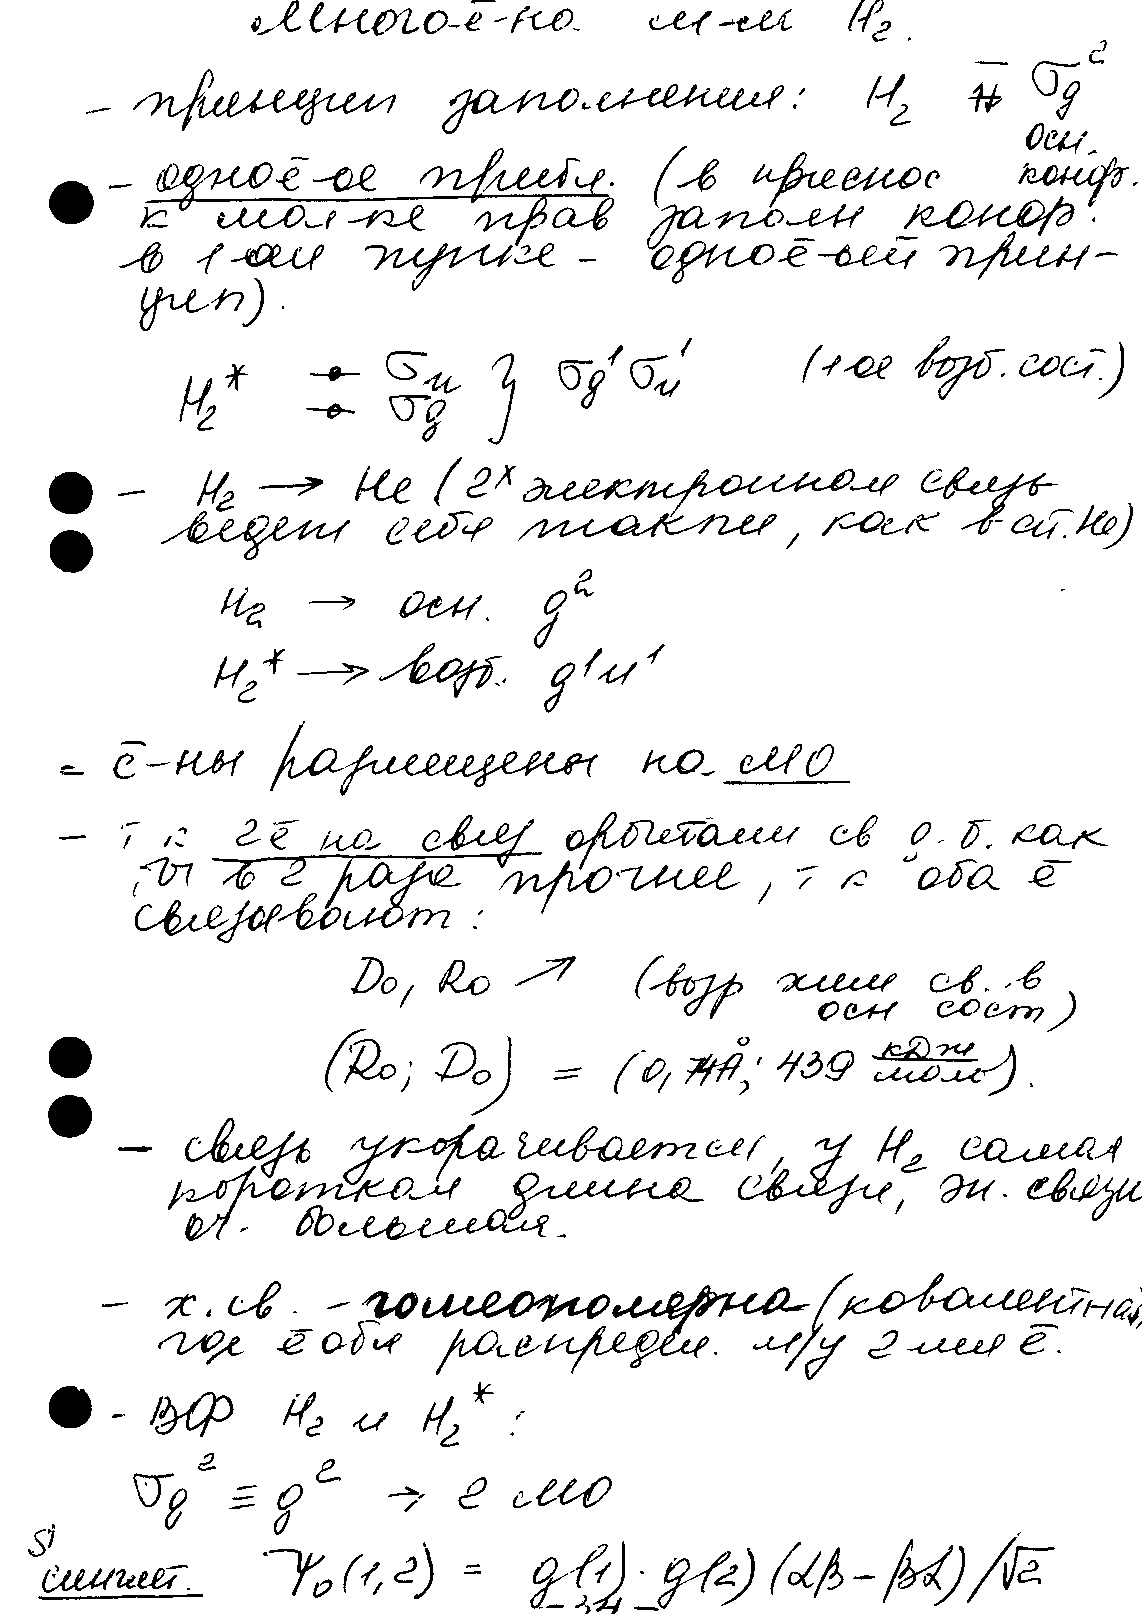 Много ē-на м-м H₂.
- принцип заполнения: H₂ σg²
осн.
- одноē-ое прибл. (в приснос конф.
к мол-ке прав заполн конфр.
в 1-ом пункте - одноē-ый прин-
цип).
H₂* σu σg } σg¹ σu¹ (1ое возб. сост.)
- H₂ → He (2х электронном связь
ведет себя также, как в сп. He)
H₂ → осн. g²
H₂* → возб. g¹u¹
= ē-ны размещены на МО
- т к 2ē на связ орбитали св д.б. как
в 2 раза прочнее, т к оба ē
связывают:
D₀, R₀ ↗ (возр хим св. в
осн сост)
(R₀; D₀) = (0,74Å; 439 кДж/моль).
- связь укорачивается, у H₂ самая
короткая длина связи, эн. связи
оч. большая.
- х. св. - гомеополярна (ковалентная,
где ē обл распредел. м/у 2 мя ē.
- ВФ H₂ и H₂* :
σg² ≡ g² → 2 МО
S¹
синглет. Ψ₀(1,2) = g(1) · g(2) (αβ - βα) / √2
- 34 -